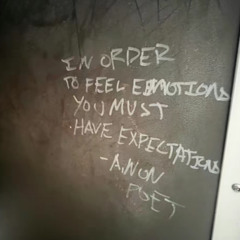 IN ORDER
TO FEEL EMOTIONS
YOU MUST
HAVE EXPECTATIONS
- ANON
POET